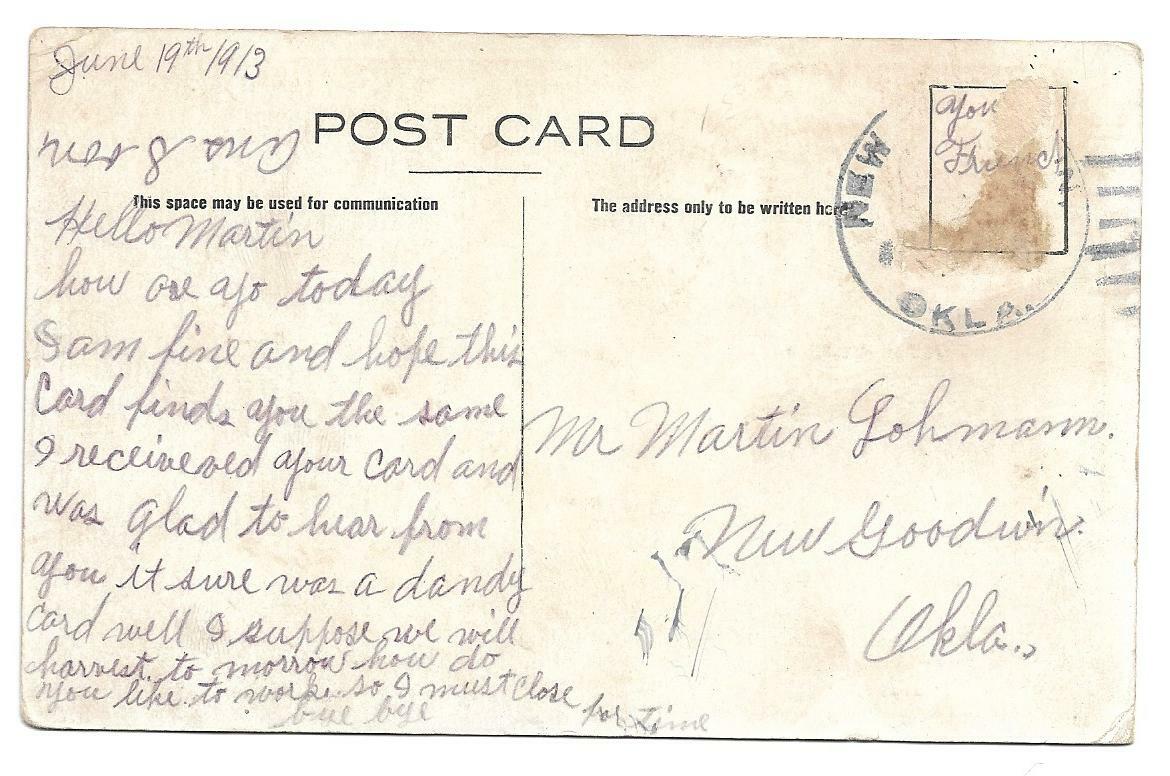 June 19th 1913
POST CARD
This space may be used for communication
The address only to be written here
NEW
OKLA.
you
Friend
Hello Martin
how are yo today
I am fine and hope this
Card finds you the same
I receiveved your Card and
was glad to hear from
you it sure was a dandy
Card well I suppose we will
harvest to morrow how do
you like to work so I must Close
for time
bye bye
Mr Martin Lohmann.
New Goodwin.
Okla.,